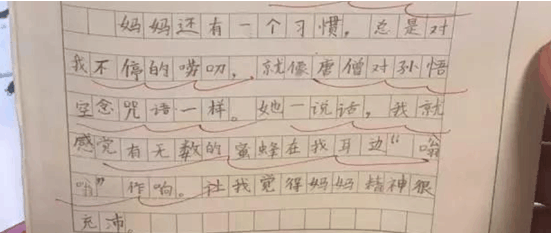 妈妈还有一个习惯，总是对
我不停的唠叨，就像唐僧对孙悟
空念咒语一样。她一说话，我就
感觉有无数的蜜蜂在我耳边“嗡
嗡”作响。让我觉得妈妈精神很
充沛。